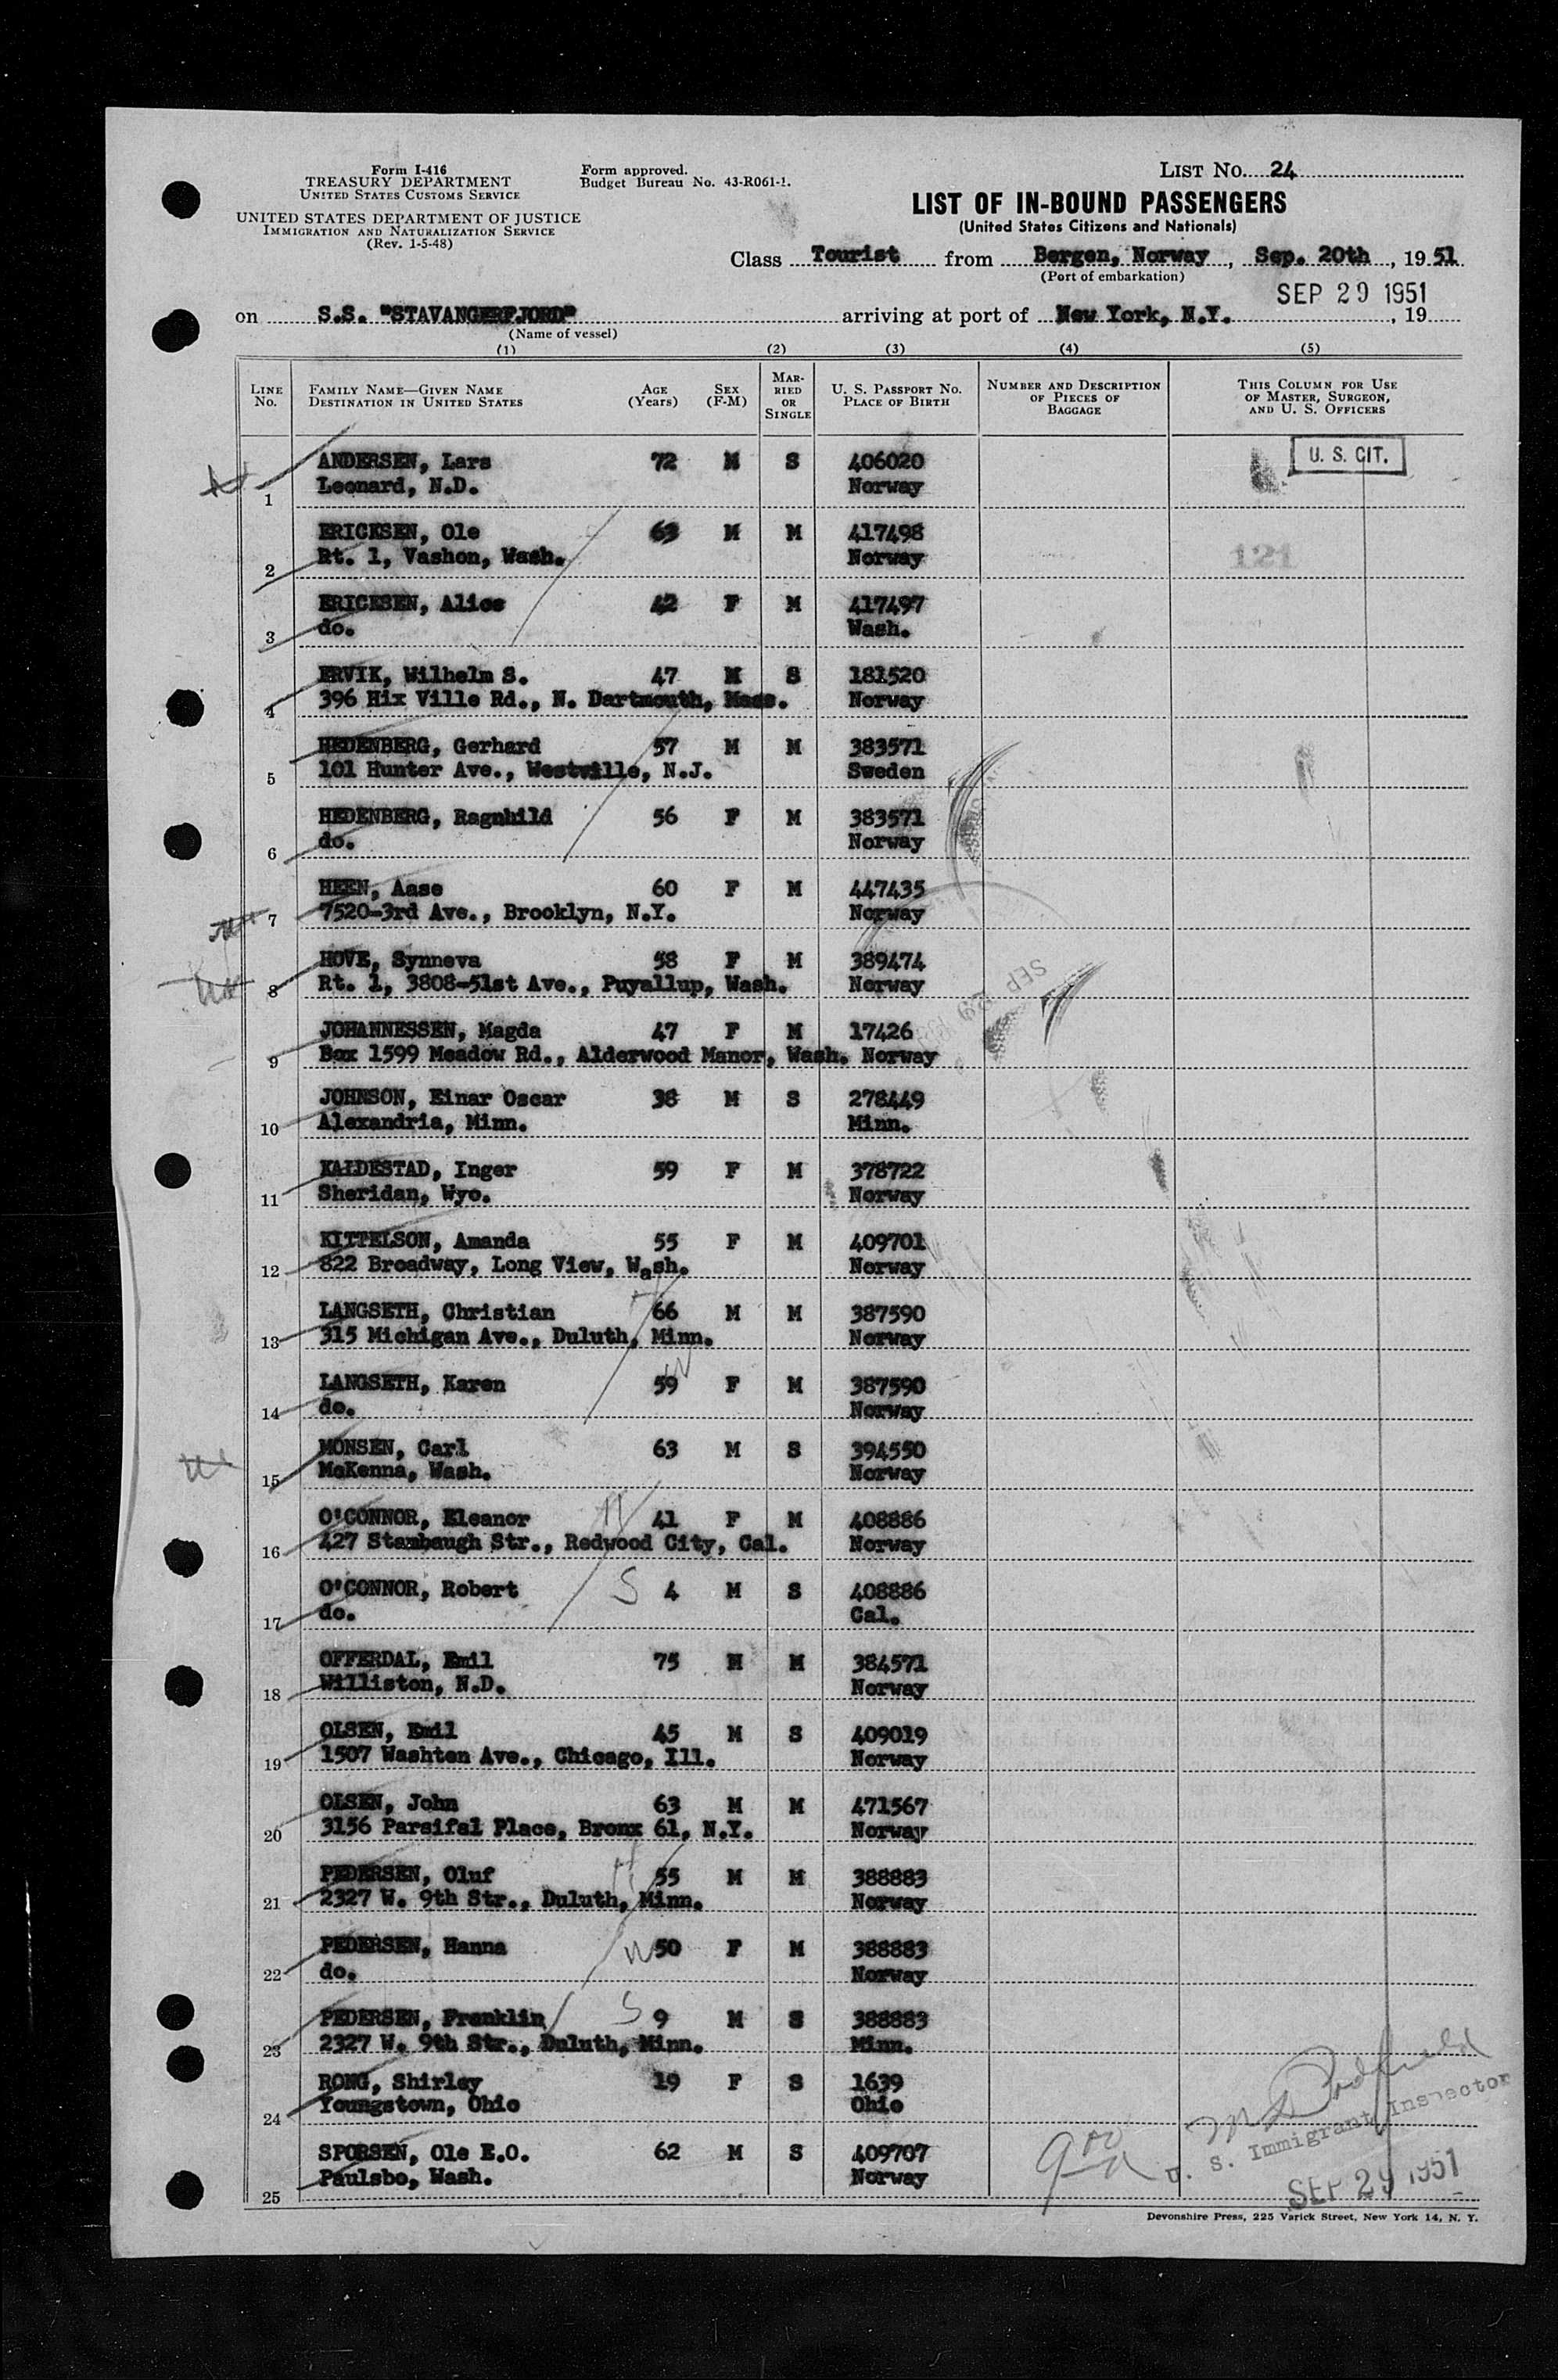 Form I-416
TREASURY DEPARTMENT
UNITED STATES CUSTOMS SERVICE
UNITED STATES DEPARTMENT OF JUSTICE
IMMIGRATION AND NATURALIZATION SERVICE
(Rev. 1-5-48)
Form approved.
Budget Bureau No. 43-R061-1.
LIST No. 24
LIST OF IN-BOUND PASSENGERS
(United States Citizens and Nationals)
Class Tourist from Bergen, Norway, Sep. 20th, 1951
(Port of embarkation)
SEP 29 1951
on S.S. "STAVANGERFJORD" arriving at port of New York, N.Y., 19
(Name of vessel)
(1) (2) (3) (4) (5)
LINE No. FAMILY NAME—GIVEN NAME DESTINATION IN UNITED STATES AGE (Years) SEX (F-M) MARRIED OR SINGLE U. S. PASSPORT No. PLACE OF BIRTH NUMBER AND DESCRIPTION OF PIECES OF BAGGAGE THIS COLUMN FOR USE OF MASTER, SURGEON, AND U. S. OFFICERS
ANDERSEN, Lars 72 M S 406020 U. S. CIT.
1 Leonard, N.D. Norway
ERICKSEN, Ole 63 M M 417498
2 Rt. 1, Vashon, Wash. Norway 121
ERICKSEN, Alice 42 F M 417497
3 do. Wash.
ERVIK, Wilhelm S. 47 M S 181520
4 396 Hix Ville Rd., N. Dartmouth, Mass. Norway
HEDENBERG, Gerhard 57 M M 383571
5 101 Hunter Ave., Westville, N.J. Sweden
HEDENBERG, Ragnhild 56 F M 383571
6 do. Norway
HEEN, Aase 60 F M 447435
7 7520-3rd Ave., Brooklyn, N.Y. Norway
HOVE, Synneva 58 F M 389474
8 Rt. 1, 3808-51st Ave., Puyallup, Wash. Norway
JOHANNESSEN, Magda 47 F M 17426
9 Box 1599 Meadow Rd., Alderwood Manor, Wash. Norway
JOHNSON, Einar Oscar 38 M S 278449
10 Alexandria, Minn. Minn.
KALDESTAD, Inger 59 F M 378722
11 Sheridan, Wyo. Norway
KITTELSON, Amanda 55 F M 409701
12 822 Broadway, Long View, Wash. Norway
LANGSETH, Christian H 66 M M 387590
13 315 Michigan Ave., Duluth, Minn. Norway
LANGSETH, Karen 59 W F M 387590
14 do. Norway
MONSEN, Carl 63 M S 394550
15 McKenna, Wash. Norway
O'CONNOR, Eleanor 41 F M 408886
16 427 Stambaugh Str., Redwood City, Cal. Norway
O'CONNOR, Robert S 4 M S 408886
17 do. Cal.
OFFERDAL, Emil 75 M M 384571
18 Williston, N.D. Norway
OLSEN, Emil 45 M S 409019
19 1507 Washten Ave., Chicago, Ill. Norway
OLSEN, John 63 M M 471567
20 3156 Parsifal Place, Bronx 61, N.Y. Norway
PEDERSEN, Oluf H 55 M M 388883
21 2327 W. 9th Str., Duluth, Minn. Norway
PEDERSEN, Hanna W 50 F M 388883
22 do. Norway
PEDERSEN, Franklin S 9 M S 388883
23 2327 W. 9th Str., Duluth, Minn. Minn.
RONG, Shirley 19 F S 1639
24 Youngstown, Ohio Ohio
SPORSEN, Ole E.O. 62 M S 409707
25 Paulsbo, Wash. Norway
U. S. Immigrant Inspector
SEP 29 1951
Devonshire Press, 225 Varick Street, New York 14, N. Y.